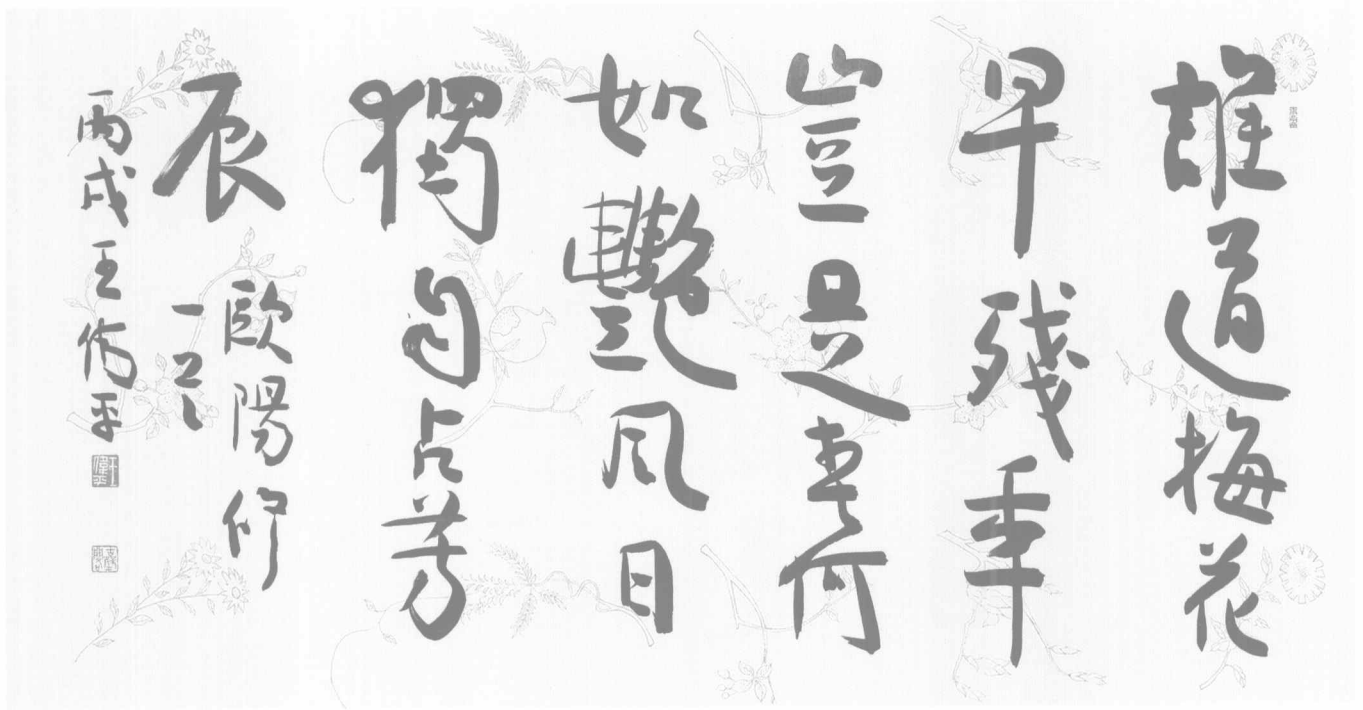 誰道梅花
早殘年
豈是春何
如艷風日
獨自占芳
辰
歐陽修
一首
丙戌王偉平